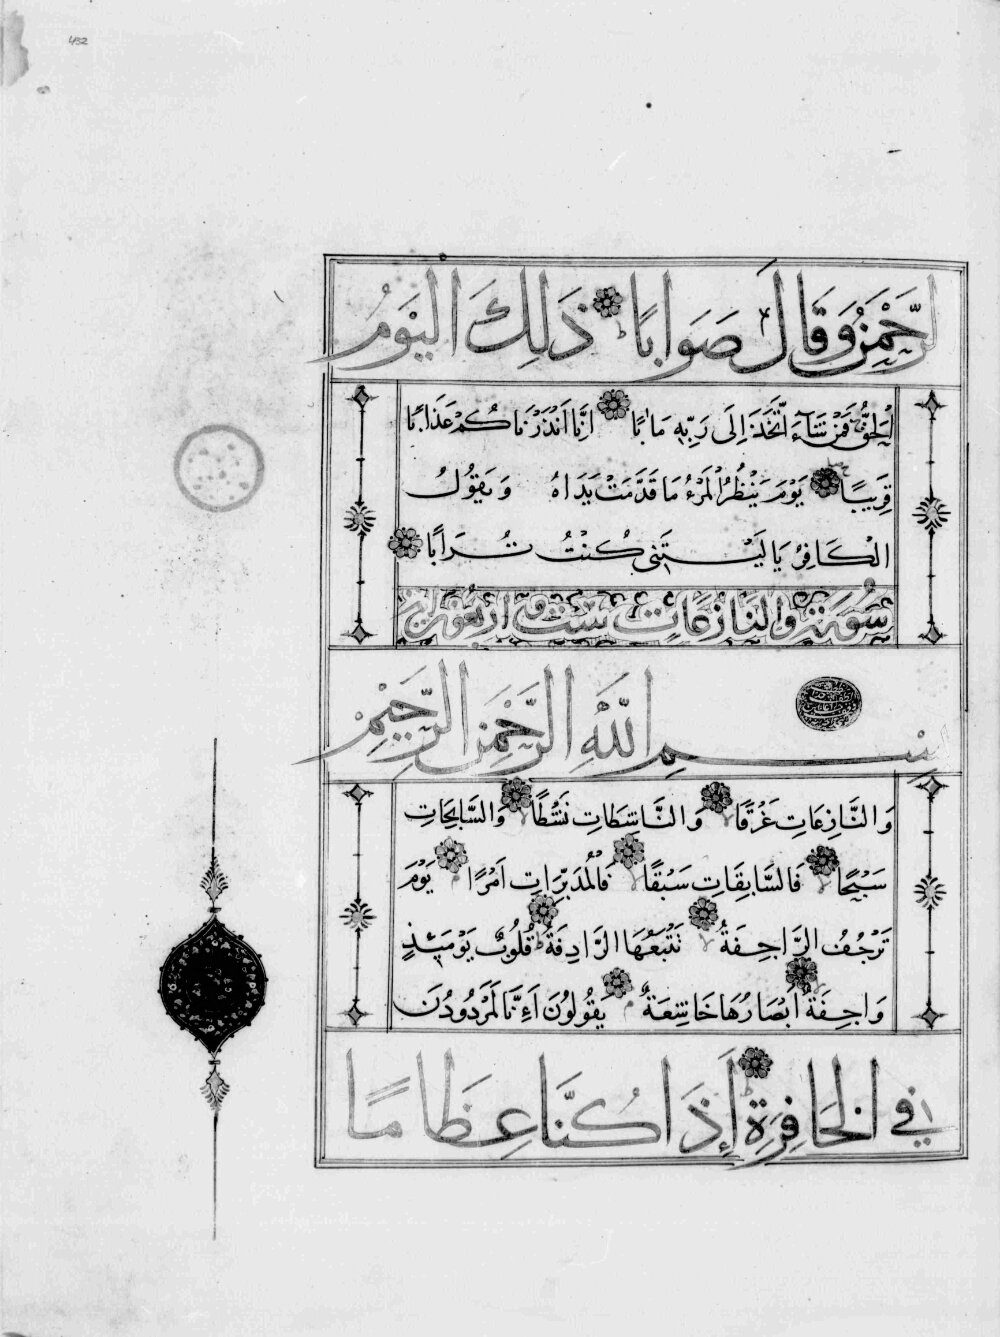 452
الرَّحْمٰنُ وَقَالَ صَوَابًا ذَلِكَ الْيَوْمُ
الْحَقُّ فَمَنْ شَاءَ اتَّخَذَ إِلَى رَبِّهِ مَآبًا إِنَّا أَنْذَرْنَاكُمْ عَذَابًا
قَرِيبًا يَوْمَ يَنْظُرُ الْمَرْءُ مَا قَدَّمَتْ يَدَاهُ وَيَقُولُ
الْكَافِرُ يَا لَيْتَنِي كُنْتُ تُرَابًا
سورة والنازعات ست و اربعون اية
بِسْمِ اللّٰهِ الرَّحْمٰنِ الرَّحِيمِ
وَالنَّازِعَاتِ غَرْقًا وَالنَّاشِطَاتِ نَشْطًا وَالسَّابِحَاتِ
سَبْحًا فَالسَّابِقَاتِ سَبْقًا فَالْمُدَبِّرَاتِ أَمْرًا يَوْمَ
تَرْجُفُ الرَّاجِفَةُ تَتْبَعُهَا الرَّادِفَةُ قُلُوبٌ يَوْمَئِذٍ
وَاجِفَةٌ أَبْصَارُهَا خَاشِعَةٌ يَقُولُونَ أَءِنَّا لَمَرْدُودُونَ
فِي الْحَافِرَةِ أَإِذَا كُنَّا عِظَامًا